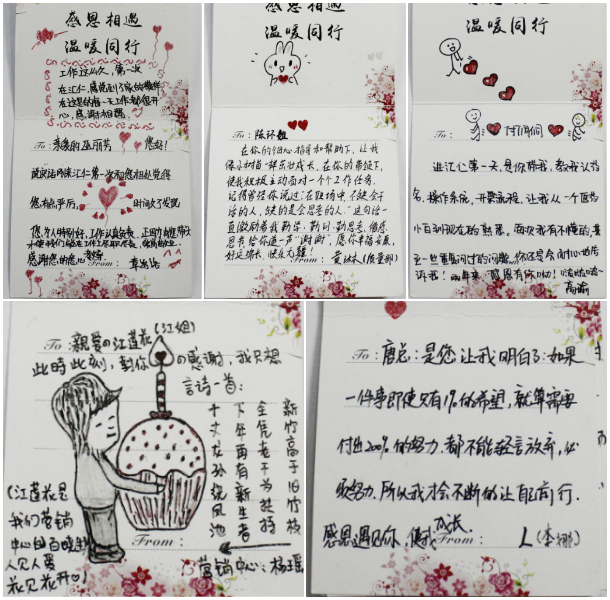 感恩相遇
温暖同行
工作这么久，第一次
在汇仁，感觉到了家的
在这里的每一天工作都很开
心，感谢相遇
To: 亲爱的
您好！
您相处后，
时间久了发现
感谢您的
From:
感恩相遇
温暖同行
To: 陈环姐
在你的细心指导和帮助下，让我
像小树苗一样茁壮成长，在你的带领下，
使我积极主动面对一个个工作任务.
记得曾经你说过：在职场中，不缺会干
活的人，缺的是会思考的人."这句话一
直激励着我勤学、勤问、勤思考。借感
恩书给你道一声"谢谢"，愿你幸福安康，
好运绵长，快乐无疆！
From: 黄冰林(质量部)
温暖同行
To: 付们们
进汇仁第一天，是你带我，教我认药
名，操作系统，开票流程，让我从一个医药
小白到现在的熟悉，每次我有不懂的，甚
至一些重复问过的问题，你还是会耐心地告
诉我！两年来，感恩有你呦！
From:
To: 亲爱の江莲花(江姐)
此時此刻，對你の感謝，我只想
言詩一首：
新竹高于旧竹枝
全凭老干为扶持
下年再有新生者
十丈龙孙绕凤池
(江莲花是
我们营销
中心的百晓生
人见人爱
花见花开♡)
From:
营销中心：杨瑶
To: 唐总：是您让我明白了：如果
一件事即使只有1%的希望，就算需要
付出200%的努力，都不能轻言放弃，必
须努力.所以我才会不断的让自己前行.
感恩遇见你，使我成长.
From: 人(李娜)